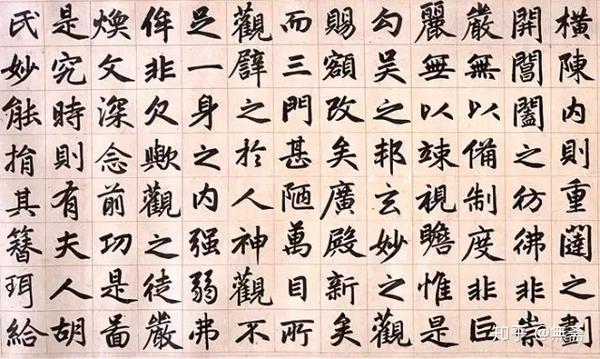 橫陳内則重闥之劃
開閶闔之彷彿非崇
嚴無以備制度非巨
麗無以竦視瞻惟是
勾吴之邦玄妙之觀
賜額改矣廣殿新矣
而三門甚陋萬目所
觀譬之於人神觀不
足一身之内强弱弗
侔非欠歟觀之徒嚴
煥文深念前功是啚
是究時則有夫人胡
氏妙能捐其簪珥給
知乎 @無斋